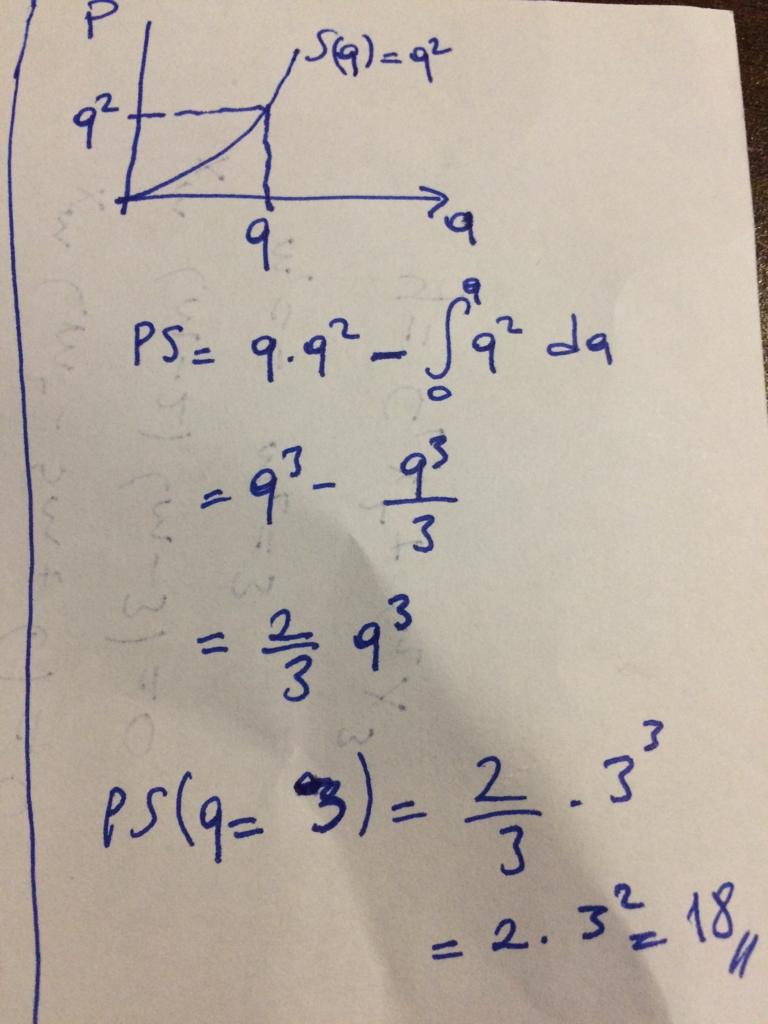 P
S(q) = q²
q²
q
q
PS = q · q² - ∫₀^q q² dq
= q³ - q³/3
= 2/3 q³
PS(q = 3) = 2/3 · 3³
= 2 · 3² = 18 //